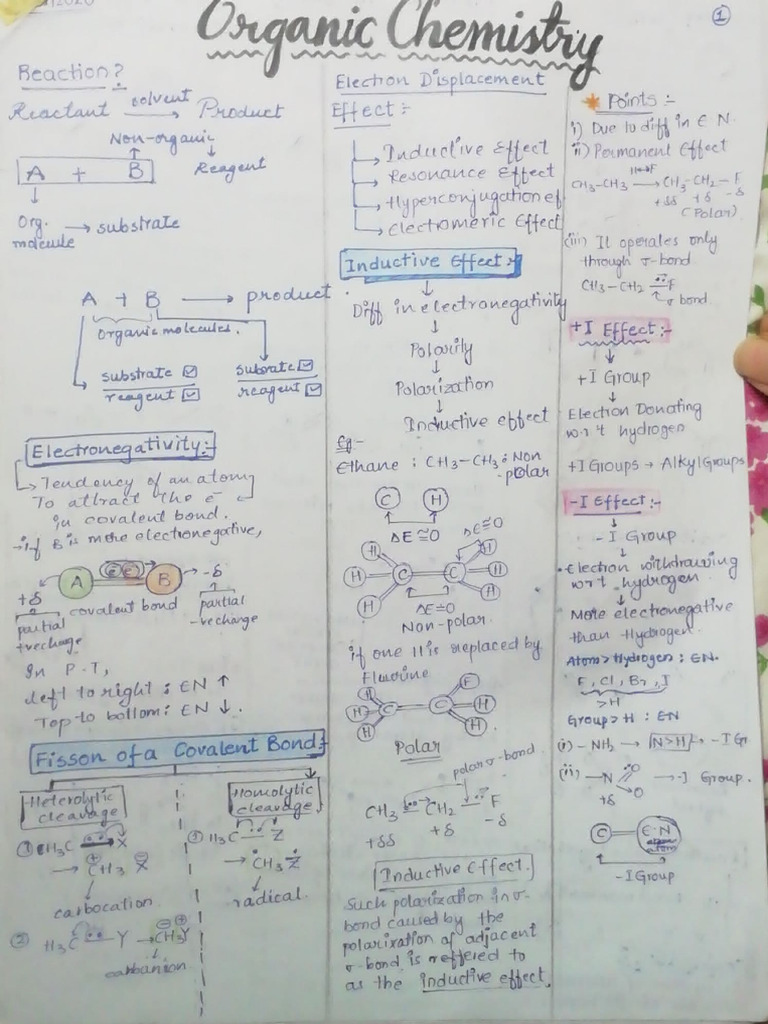 2020
Organic Chemistry
1
Reaction?
Reactant solvent → Product
Non-organic
A + B
Reagent
Org. molecule → substrate
A + B → product
Organic molecules.
substrate ☑ substrate ☑
reagent ☑ reagent ☑
Electronegativity:-
→ Tendency of an atom
To attract the e-
in covalent bond.
→ if B is more electronegative,
A B
+δ -δ
covalent bond
partial +vecharge
partial -vecharge
In P.T,
left to right : EN ↑
Top to bottom: EN ↓.
Fisson of a Covalent Bond:-
Heterolytic cleavage
① CH3C X
→ ⊕CH3 ⊖X
carbocation
② H3C Y → CH3 Y
carbanion
Homolytic cleavage
① H3C Z
→ ĊH3 Ż
radical.
Election Displacement
Effect:-
→ Inductive Effect
→ Resonance Effect
→ Hyperconjugation ef
→ Electromeric Effect
Inductive Effect:-
Diff in electronegativity
↓
Polarity
↓
Polarization
↓
Inductive effect
Eg-
Ethane : CH3-CH3 : Non
-polar
C H
ΔE≅0
ΔE≅0
H H
H C C H
H H
ΔE=0
Non-polar.
if one H is replaced by
Fluorine
H F
H C C H
H H
Polar
polar σ-bond
CH3 CH2 F
+δδ +δ -δ
Inductive Effect.
Such polarization in σ-
bond caused by the
polarization of adjacent
σ-bond is reffered to
as the inductive effect.
Points :-
i) Due to diff in E N.
ii) Permanent Effect
H↔F
CH3-CH3 → CH3-CH2-F
+δδ +δ -δ
(Polar)
(iii) It operates only
through σ-bond
CH3-CH2 F
σ bond
+I Effect:-
↓
+I Group
↓
Election Donating
w.r.t hydrogen
+I Groups → Alkyl Groups
-I Effect:-
↓
-I Group
↓
Election withdrawing
wrt hydrogen
↓
More electronegative
than Hydrogen.
Atom > Hydrogen : EN.
F, Cl, Br, I
>H
Group > H : EN
(i) -NH2 → N>H → -I Gr
(ii) -N O O → -I Group.
+δ
C E·N atom
-I Group